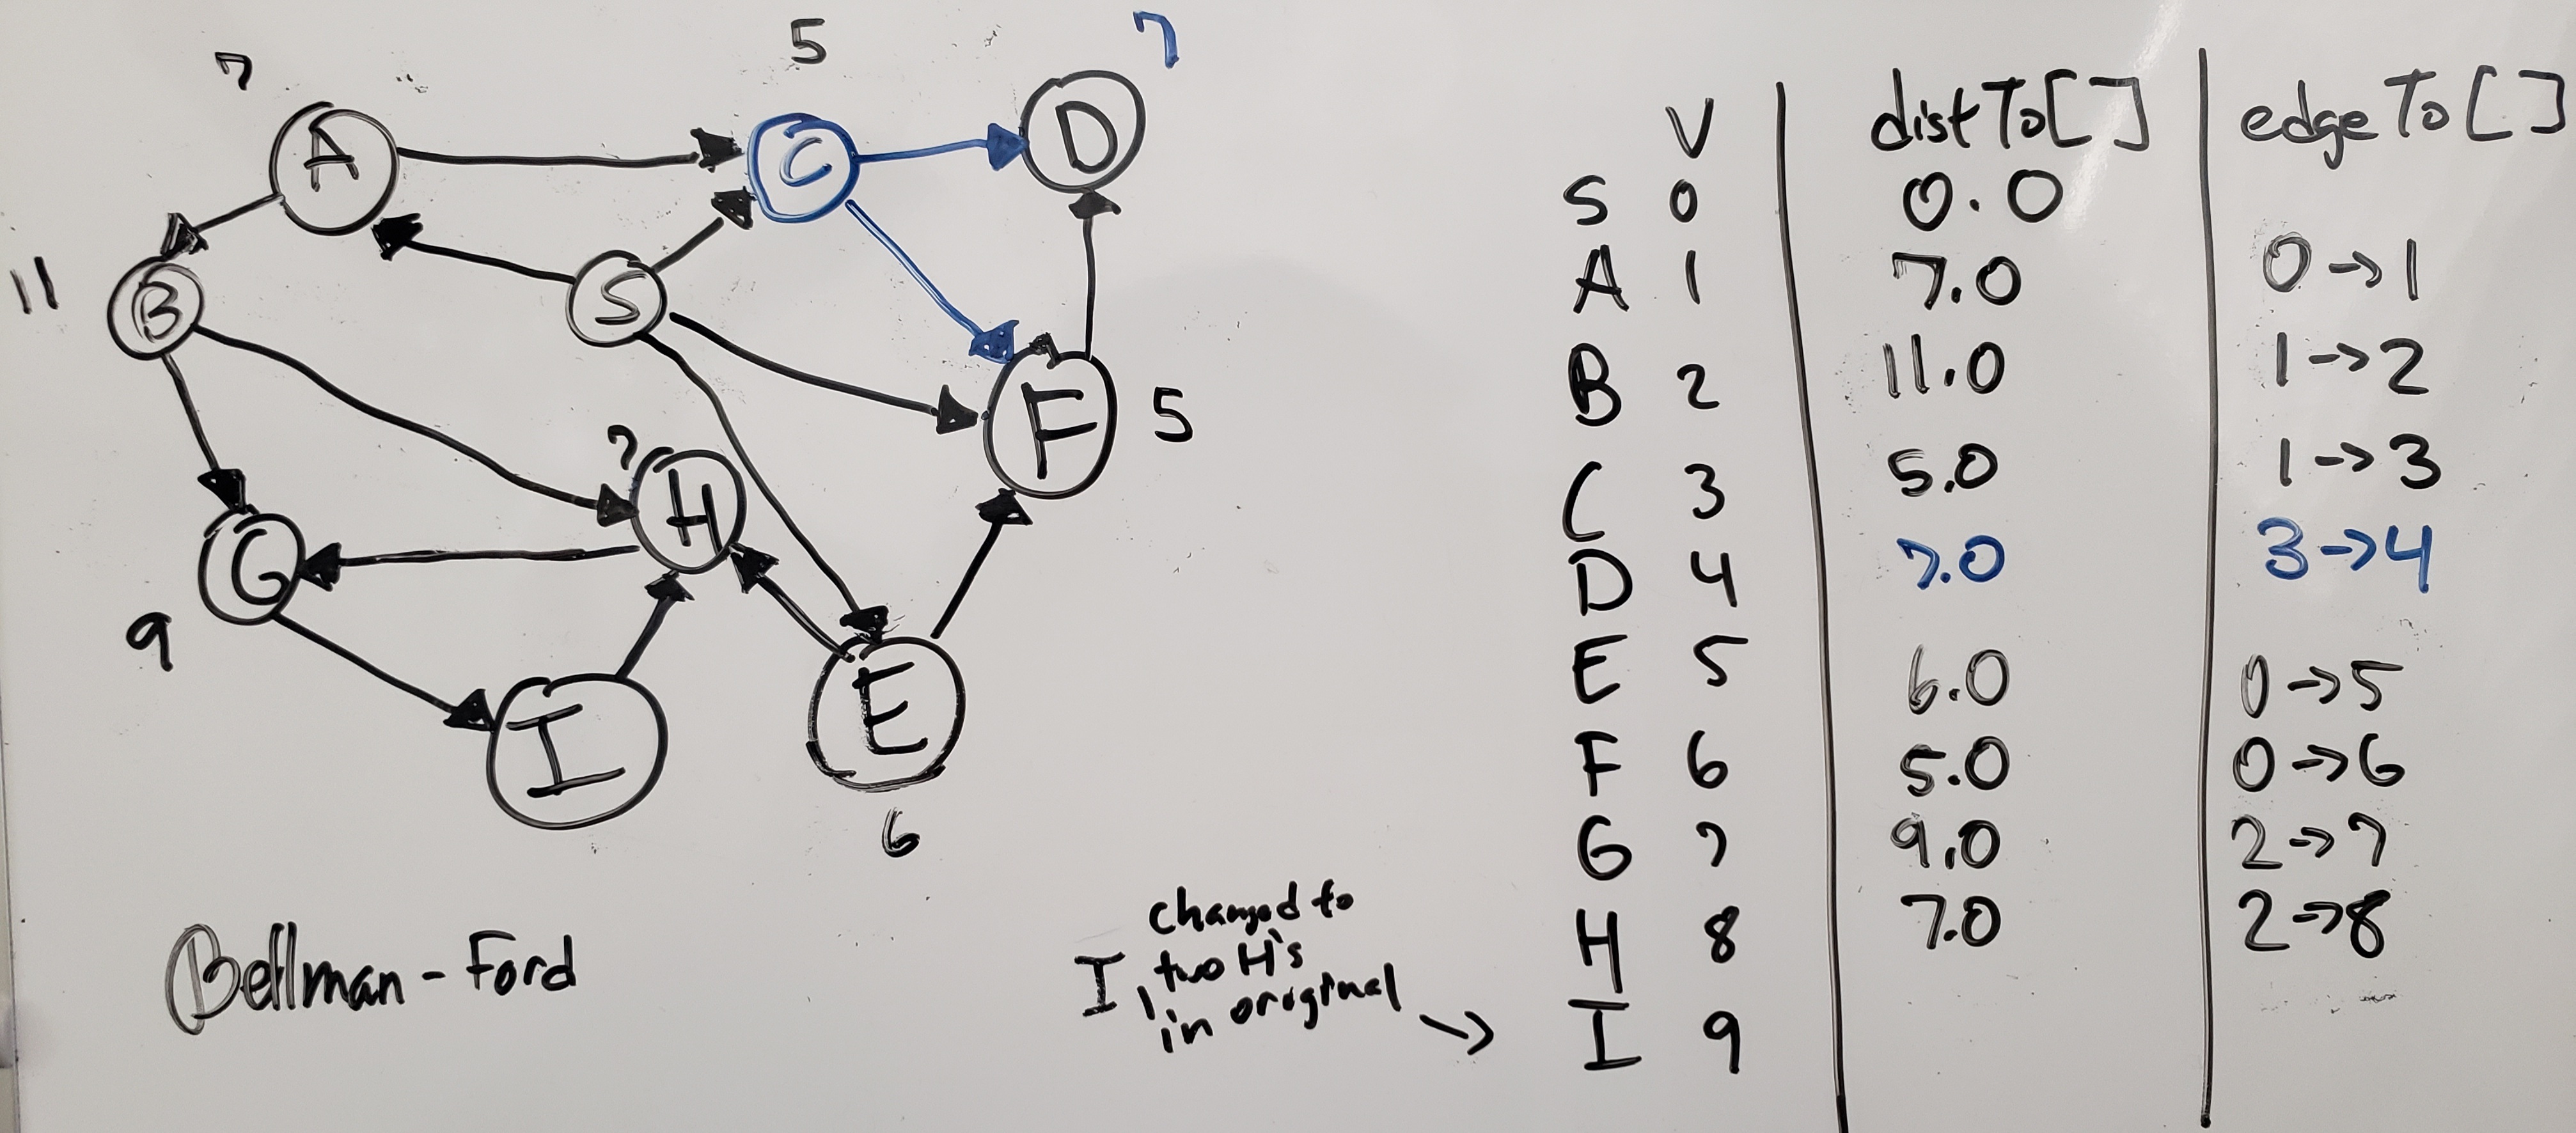 5
7
7
A
C
D
B
S
11
F
5
7
H
G
9
I
E
6
Bellman - Ford
changed to
I, two H's
in original
→
V | distTo[] | edgeTo[]
S 0 | 0.0 |
A 1 | 7.0 | 0→1
B 2 | 11.0 | 1→2
C 3 | 5.0 | 1→3
D 4 | 7.0 | 3→4
E 5 | 6.0 | 0→5
F 6 | 5.0 | 0→6
G 7 | 9.0 | 2→7
H 8 | 7.0 | 2→8
I 9 | |